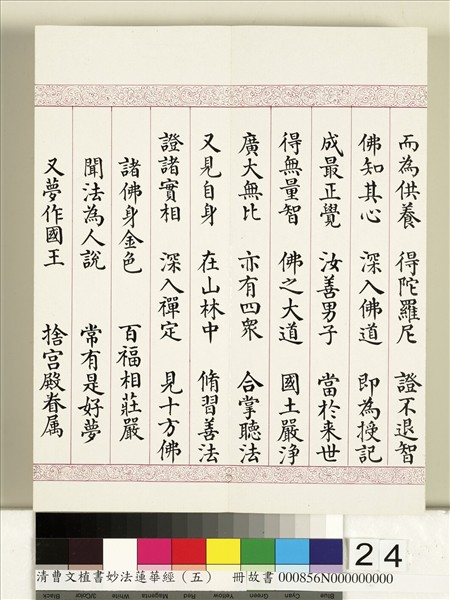 而為供養 得陀羅尼 證不退智
佛知其心 深入佛道 即為授記
成最正覺 汝善男子 當於来世
得無量智 佛之大道 國土嚴淨
廣大無比 亦有四衆 合掌聽法
又見自身 在山林中 脩習善法
證諸實相 深入禪定 見十方佛
諸佛身金色 百福相莊嚴
聞法為人說 常有是好夢
又夢作國王 捨宮殿眷属
24
清曹文植書妙法蓮華經（五） 冊故書 000856N000000000
Black 3/Color White Magenta Red Yellow Green Cyan Blue